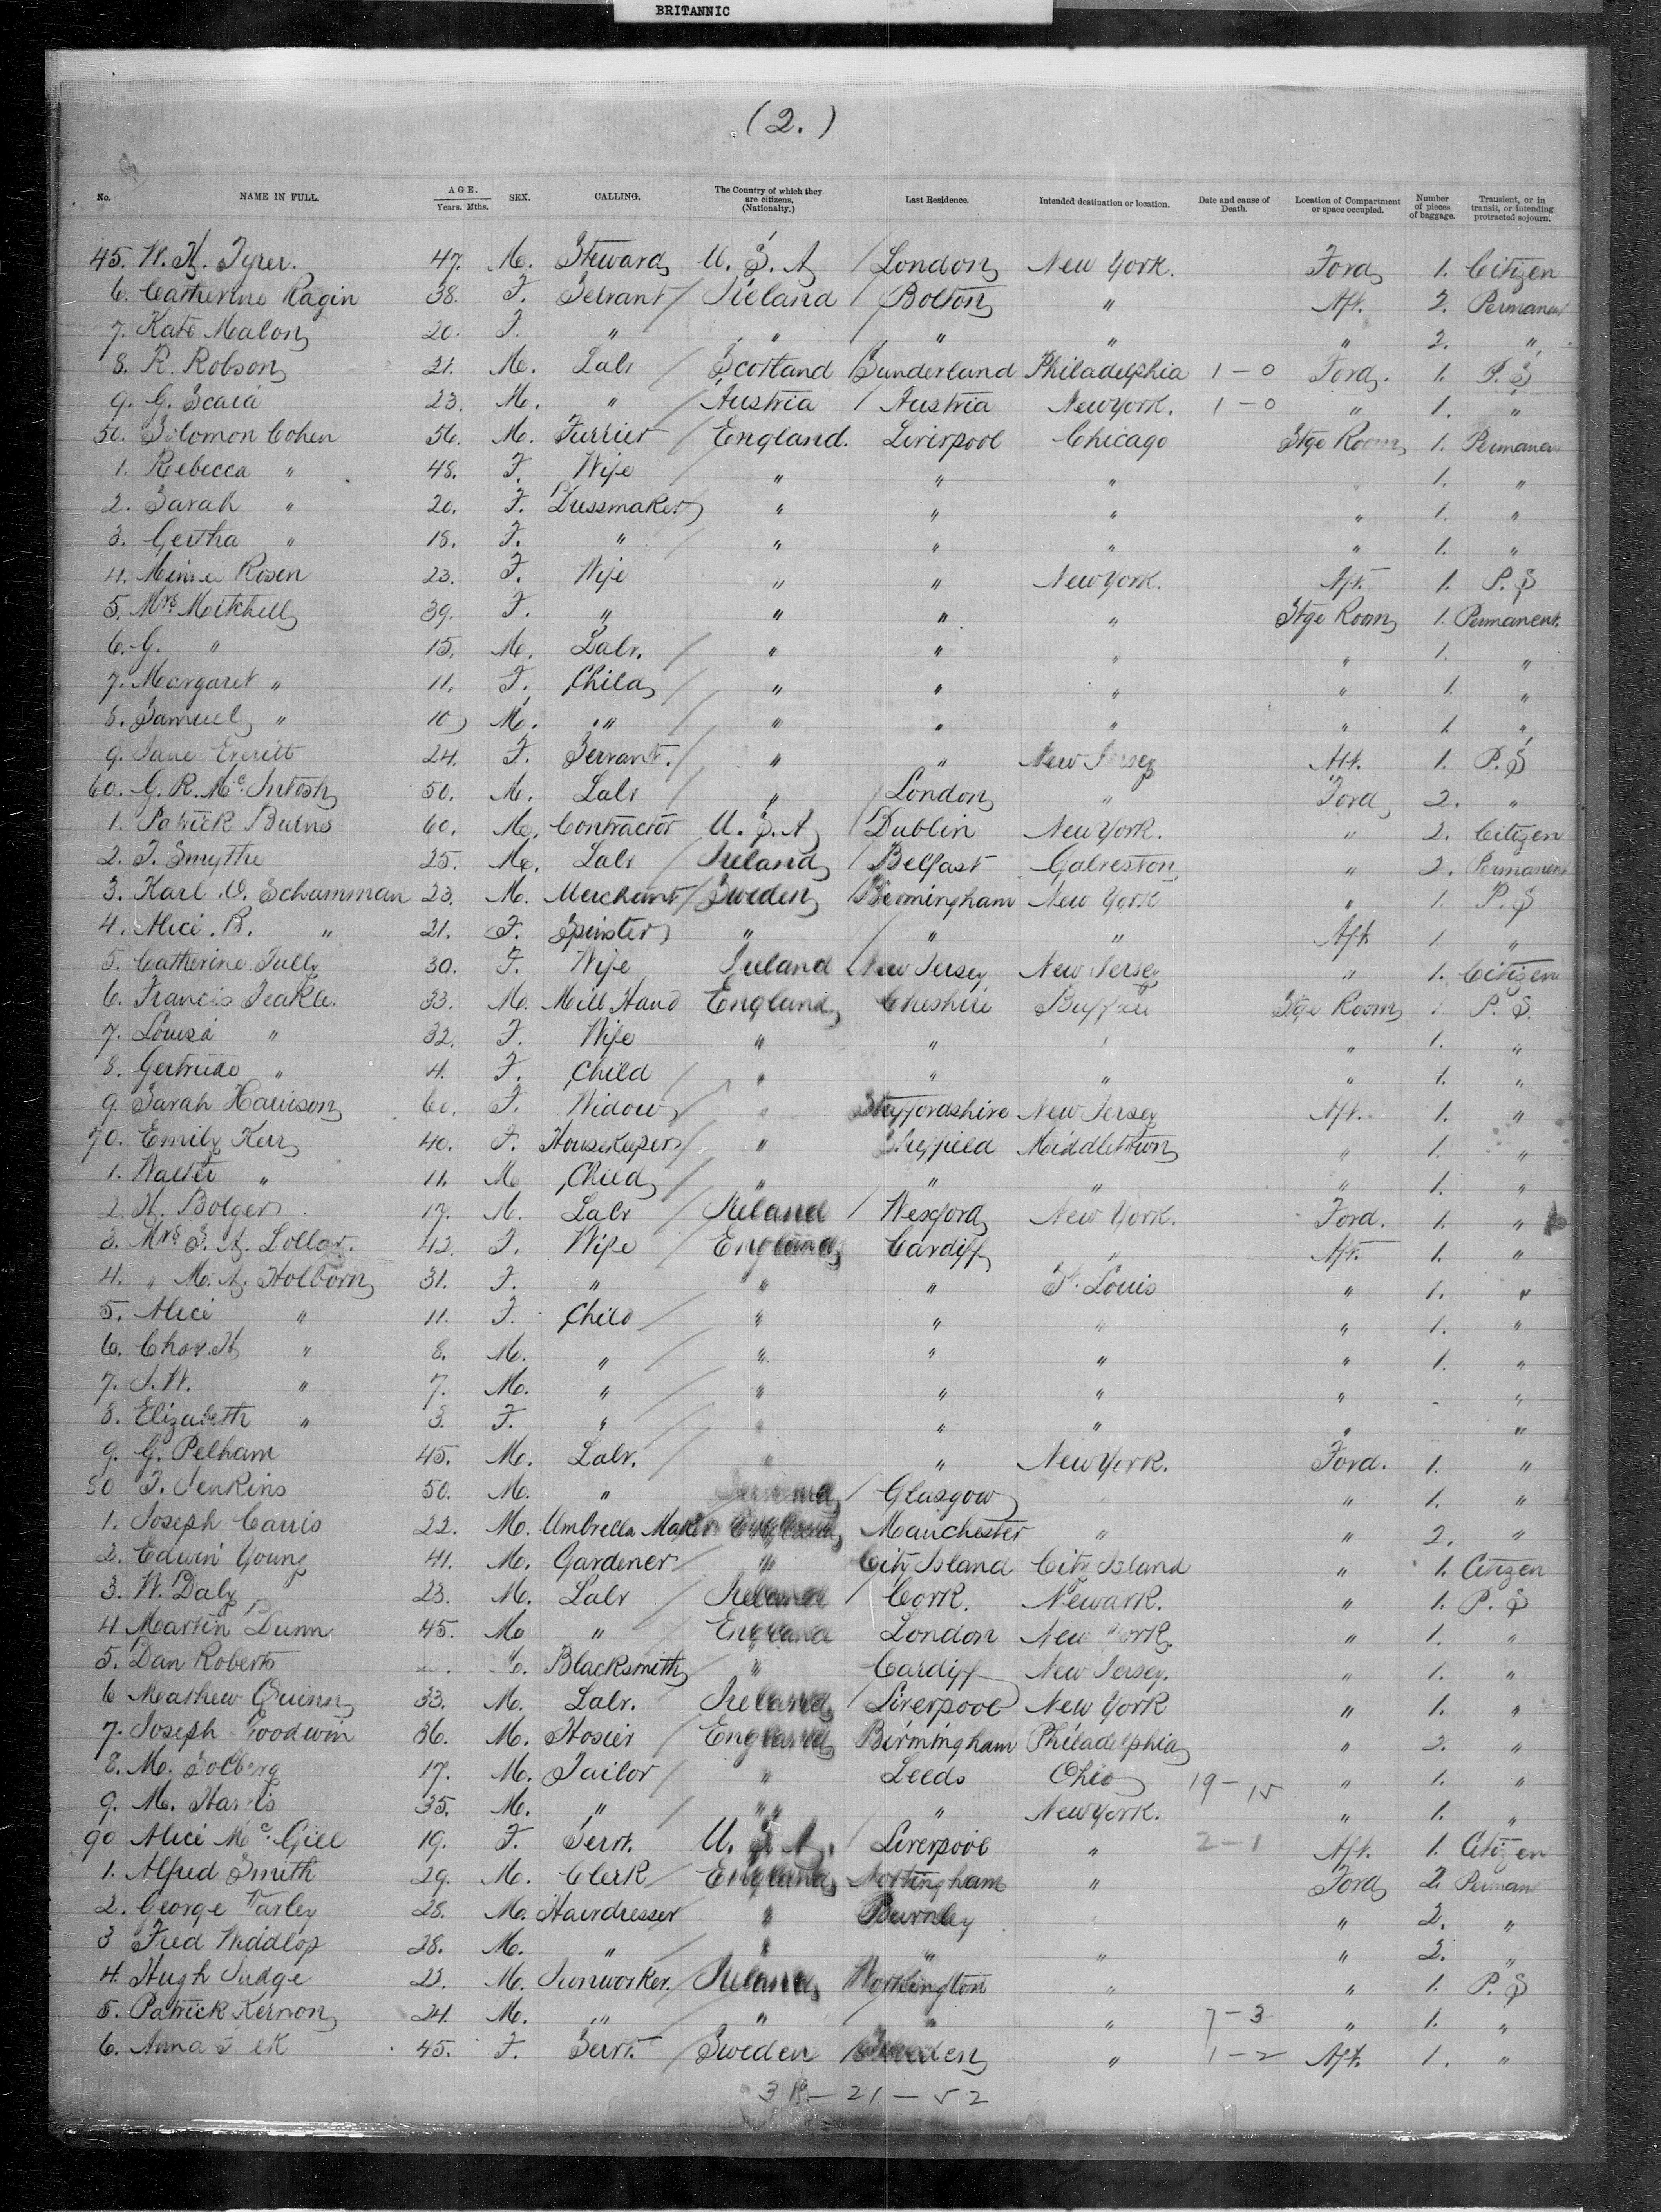 BRITANNIC
(2.)
No. NAME IN FULL. AGE. Years. Mths. SEX. CALLING. The Country of which they are citizens. (Nationality.) Last Residence. Intended destination or location. Date and cause of Death. Location of Compartment or space occupied. Number of pieces of baggage. Transient, or in transit, or intending protracted sojourn.
45. W. H. Tyrer. 47. M. Steward U. S. A London New York. Ford 1. Citizen
6. Catherine Ragin 38. F. Servant Ireland Bolton " Aft. 2. Permanent
7. Kate Malon 20. F. " " " " " 2. "
8. R. Robson 21. M. Labr Scotland Sunderland Philadelphia 1-0 Ford. 1. P. S
9. G. Scaia 23. M. " Austria Austria New York. 1-0 " 1. "
50. Solomon Cohen 56. M. Furrier England. Liverpool Chicago Stge Room 1. Permanen
1. Rebecca " 48. F. Wife " " " 1. "
2. Sarah " 20. F. Dressmaker " " " " 1. "
3. Gertha " 18. F. " " " " " 1. "
4. Minnie Rosen 23. F. Wife " " New York. Aft. 1. P. S
5. Mrs Mitchell 39. F. " " " " Stge Room 1. Permanent.
6. G. " 15. M. Labr. " " " " 1. "
7. Margaret " 11. F. Child " " " " 1. "
8. Samuel " 10 M. " " " " " 1. "
9. Jane Everitt 24. F. Servant. " " New Jersey Aft. 1. P. S
60. G. R. Mc Intosh 50. M. Labr " London " Ford 2. "
1. Patrick Burns 60. M. Contractor U. S. A Dublin New York. " 2. Citizen
2. T. Smythe 25. M. Labr Ireland Belfast Galveston " 2. Permanent
3. Karl O. Schamman 23. M. Merchant Sweden Birmingham New York " 1. P. S
4. Alice. B. " 21. F. Spinster " " " Aft 1. "
5. Catherine Tully 30. F. Wife Ireland New Jersey New Jersey " 1. Citizen
6. Francis Teakle. 33. M. Mill Hand England Cheshire Buffalo Stge Room 1. P. S.
7. Louisa " 32. F. Wife " " " " 1. "
8. Gertrude " 4. F. Child " " " " 1. "
9. Sarah Harrison 60. F. Widow " Staffordshire New Jersey Aft. 1. "
70. Emily Kerr 40. F. Housekeeper " Sheffield Middletown " 1. "
1. Walter " 11. M Child " " " " 1. "
2. H. Bolger 17. M. Labr Ireland Wexford New York. Ford. 1. "
3. Mrs S. A. Lollar. 42. F. Wife England Cardiff " Aft. 1. "
4. " M. A. Holborn 31. F. " " " St. Louis " 1. "
5. Alice " 11. F. Child " " " " 1. "
6. Chas. H " 8. M. " " " " " 1. "
7. J. W. " 7. M. " " " " " "
8. Elizabeth " 3. F. " " " " " "
9. G. Pelham 45. M. Labr. " " New York. Ford. 1. "
80 T. Jenkins 50. M. " Glasgow " " 1. "
1. Joseph Carris 22. M. Umbrella Maker England Manchester " " 2. "
2. Edwin Young 41. M. Gardener " City Island City Island " 1. Citizen
3. W. Daly 23. M. Labr Ireland Cork. Newark. " 1. P. S
4 Martin Dunn 45. M " England London New York. " 1. "
5. Dan Roberts M. Blacksmith " Cardiff New Jersey. " 1. "
6 Mathew Quinn 33. M. Labr. Ireland Liverpool New York " 1. "
7. Joseph Goodwin 36. M. Hosier England Birmingham Philadelphia " 2. "
8. M. Solberg 17. M. Tailor " Leeds Ohio 19-15 " 1. "
9. M. Harris 35. M. " " " New York. " 1. "
90 Alice Mc Gill 19. F. Servt. U. S. A. Liverpool " 2-1 Aft. 1. Citizen
1. Alfred Smith 29. M. Clerk England Nottingham " Ford 2. Perman
2. George Varley 28. M. Hairdresser " Burnley " " 2. "
3 Fred Widdlop 28. M. " " " " " 2. "
4. Hugh Judge 22. M. Ironworker. Ireland Workington " " 1. P. S
5. Patrick Kernon 24. M. " " " " 7-3 " 1. "
6. Anna 45. F. Servt. Sweden Sweden " 1-2 Aft. 1. "
21-52